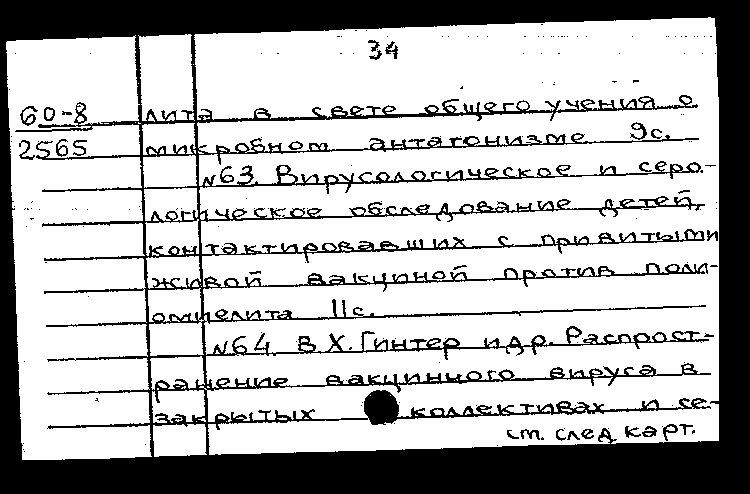 34
60-8 лита в свете общего учения о
2565 микробном антагонизме 9с.
№63. Вирусологическое и серо-
логическое обследование детей,
контактировавших с привитыми
живой вакциной против поли-
омиелита 11с.
№64 В.Х. Гинтер и др. Распрост-
ранение вакцинного вируса в
закрытых коллективах и се-
см. след карт.